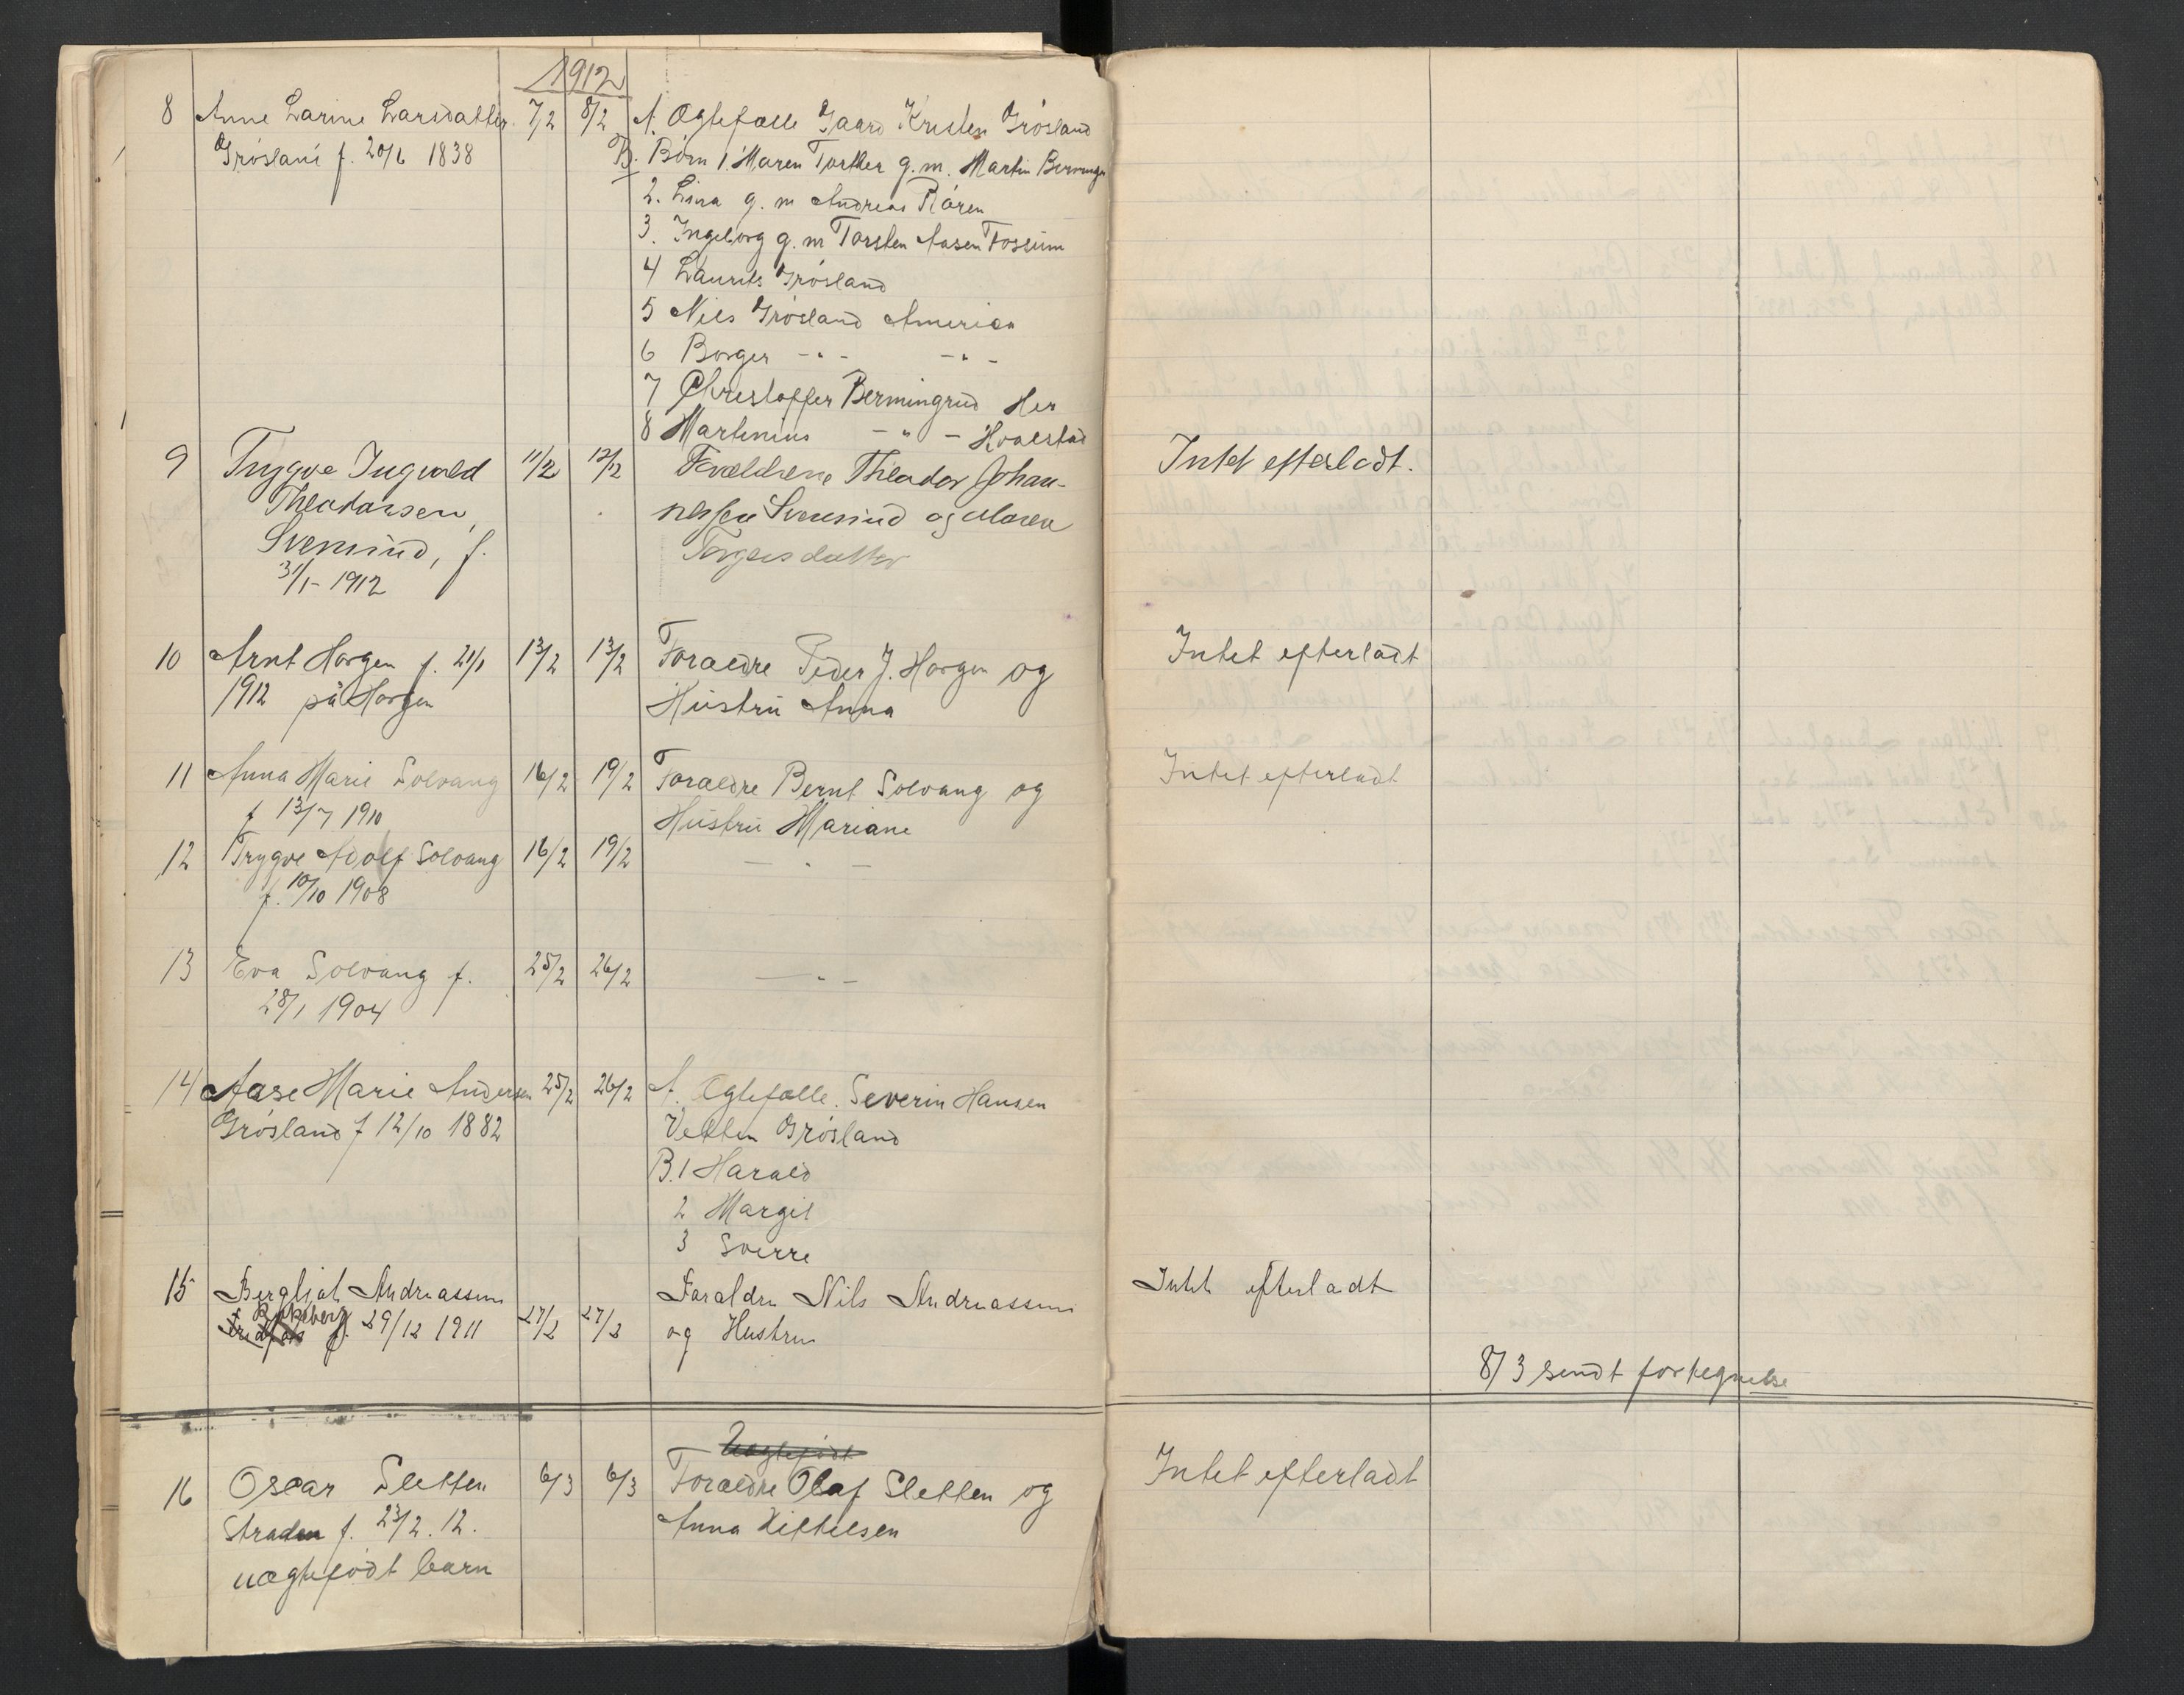 1912
8 Anne Larine Larsdatter 7/2 8/2 A. Ogtefælle Gaard Kristen Grósland
Grósland f. 20/6 1838 B. Børn 1. Maren Torther g. m. Martin
2. Lina g. m Andreas Råren
3. Ingeborg g. m Torsten Aasen Fossum
4 Laurits Grósland
5 Nils Grósland America
6 Borger -"- -"-
7 Christoffer Bermingrud Her
8 Martinius -"- Hvalstad
9 Trygve Ingvald 11/2 12/2 Forældrene Theodor Johan- Intet efterladt.
Theodorsen, nessen Svensrud og Maren
Svensrud, f. Torgersdatter
31/1- 1912
10 Arnt Horgen f. 21/1 13/2 13/2 Foraedre Peder J. Horgen og Intet efterladt
1912 på Horgen Hustru Anna
11 Anna Marie Solvang 16/2 19/2 Foraeldre Bernt Solvang og Intet efterladt
f 13/7 1910 Hustru Mariane
12 Trygve Adolf Solvang 16/2 19/2 -"-
f. 10/10 1908
13 Eva Solvang f. 25/2 26/2 -"-
28/1 1904
14 Aase Marie Andersen 25/2 26/2 A. Ogtefælle. Severin Hansen
Grósland f 12/10 1882 Vetten Grósland
B. 1 Harald
2 Margit
3 Sverre
15 Bergliot Andreassen Foraldre Nils Andreassen Intet efterladt
f. 29/12 1911 27/2 27/2 og Hustru
8/3 sendt fortegnelse
Uægtefødt
16 Oscar Sletten 6/3 6/3 Foraedre Olaf Sletten og Intet efterladt
Straden f. 23/2. 12. Anna Kittilsen
uægtefødt barn